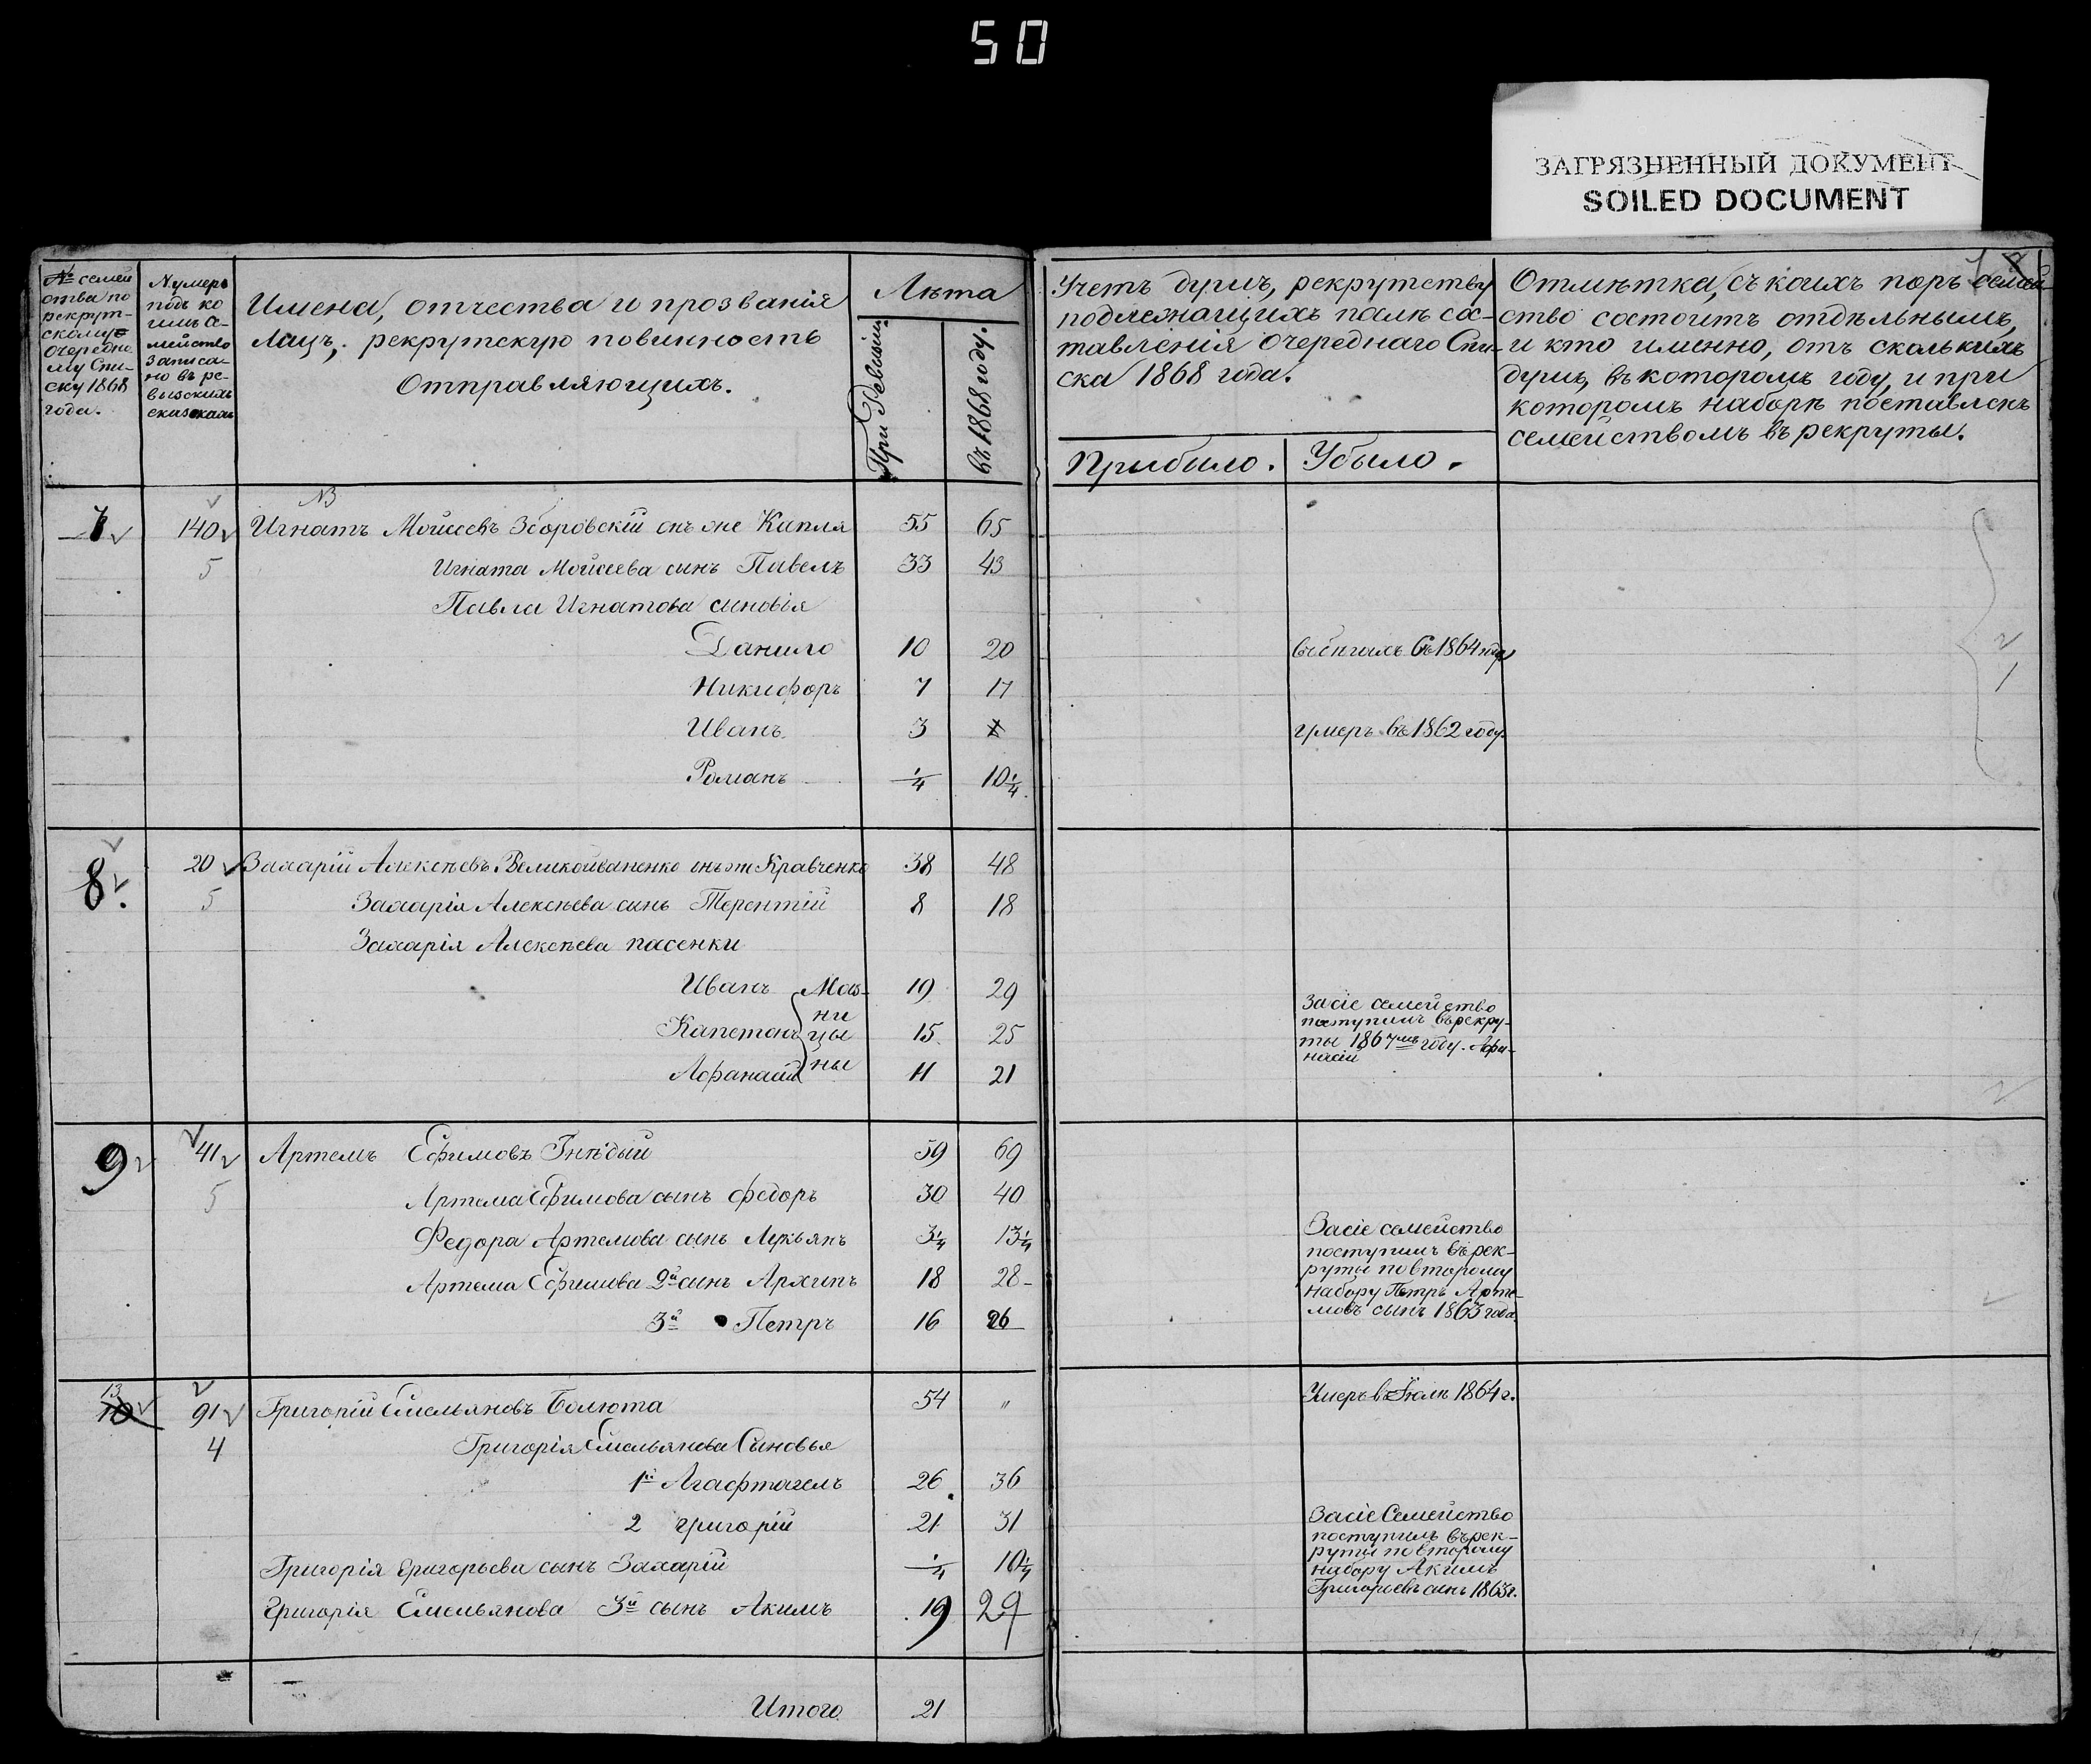 50
ЗАГРЯЗНЕННЫЙ ДОКУМЕНТ
SOILED DOCUMENT
№ семей
ства по
рекрут-
скому
очередно
му Спи-
ску 1868
года.
Нумеръ
подъ ко
имъ се-
мейство
записа-
но въ ре-
визскихъ
сказкахъ
Имена, отчества и прозванія
лицъ, рекрутскую повинность
Отправляющихъ.
Лѣта
При Ревизіи
въ 1868 году.
Учетъ душъ, рекрутству
подлежащихъ послѣ сос-
тавленія очереднаго Спи-
ска 1868 года.
Прибыло.
Убыло.
Отмѣтка, съ коихъ поръ семей
ство состоитъ отдѣльнымъ,
и кто именно, отъ сколькихъ
душъ, въ которомъ году, и при
которомъ наборѣ поставленъ
семействомъ въ рекруты.
NB
7 140 Игнатъ Мойсеевъ Зборовскій онъ же Капля 55 65
5 Игната Мойсеева сынъ Павелъ 33 43
Павла Игнатова сыновія
Данило 10 20 въ 1864 году
Никифоръ 7 17
Иванъ 3 умеръ въ 1862 году.
Романъ 1/4 10 1/4
8. 20 Захарій Алексѣевъ Великоиваненко онъ же Кравченко 38 48
5 Захарія Алексѣева сынъ Терентій 8 18
Захарія Алексѣева пасенки
Иванъ 19 29
Капетонъ 15 25
Афанасій 11 21
За сіе семейство
поступилъ въ рекру-
ты 1867мъ году. Афа-
насій
9 41 Артемъ Ефимовъ Гнѣдый 59 69
5 Артема Ефимова сынъ Федоръ 30 40
Федора Артемова сынъ Лукьянъ 3 1/4 13 1/4
Артема Ефимова 2й сынъ Архипъ 18 28
3й Петръ 16 26
За сіе семейство
поступилъ въ рек-
руты по второму
набору Петръ Арте-
мовъ сынъ 1863 года.
13
10 91 Григорій Емельяновъ Болюта 54 " Умеръ въ Іюлѣ 1864 г.
4 Григорія Емельянова Сыновья
1й Агафтагелъ 26 36
2 Григорій 21 31
Григорія Григорьева сынъ Захарій 1/4 10 1/4
Григорія Емельянова 3й сынъ Акимъ 19 29
За сіе Семейство
поступилъ въ рек-
руты по второму
набору Акимъ
Григорьевъ сынъ 1863 г.
Итого 21